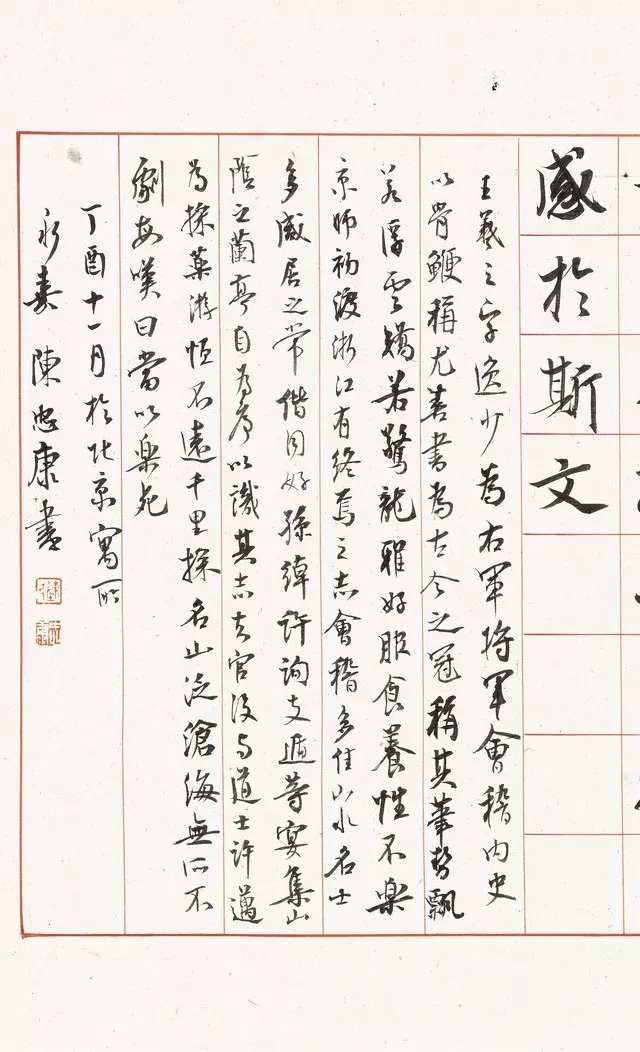 感於斯文
王羲之字逸少為右軍將軍會稽内史
以骨鯁稱尤善書為古今之冠稱其筆勢飄
若浮雲矯若驚龍雅好服食養性不樂
京師初渡浙江有終焉之志會稽多佳山水名士
多居之常偕同好孫綽許詢支遁等宴集山
陰之蘭亭自為序以識其志去官後與道士許邁
為採藥游恒不遠千里探名山泛滄海無所不
劇每嘆曰當以樂死
丁酉十一月於北京寓所
永嘉陳忠康書